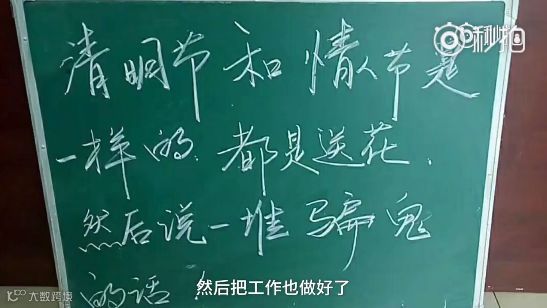 秒拍
清明节和情人节是
一样的.都是送花.
然后说一堆骗鬼
的话!
然后把工作也做好了
大数跨境